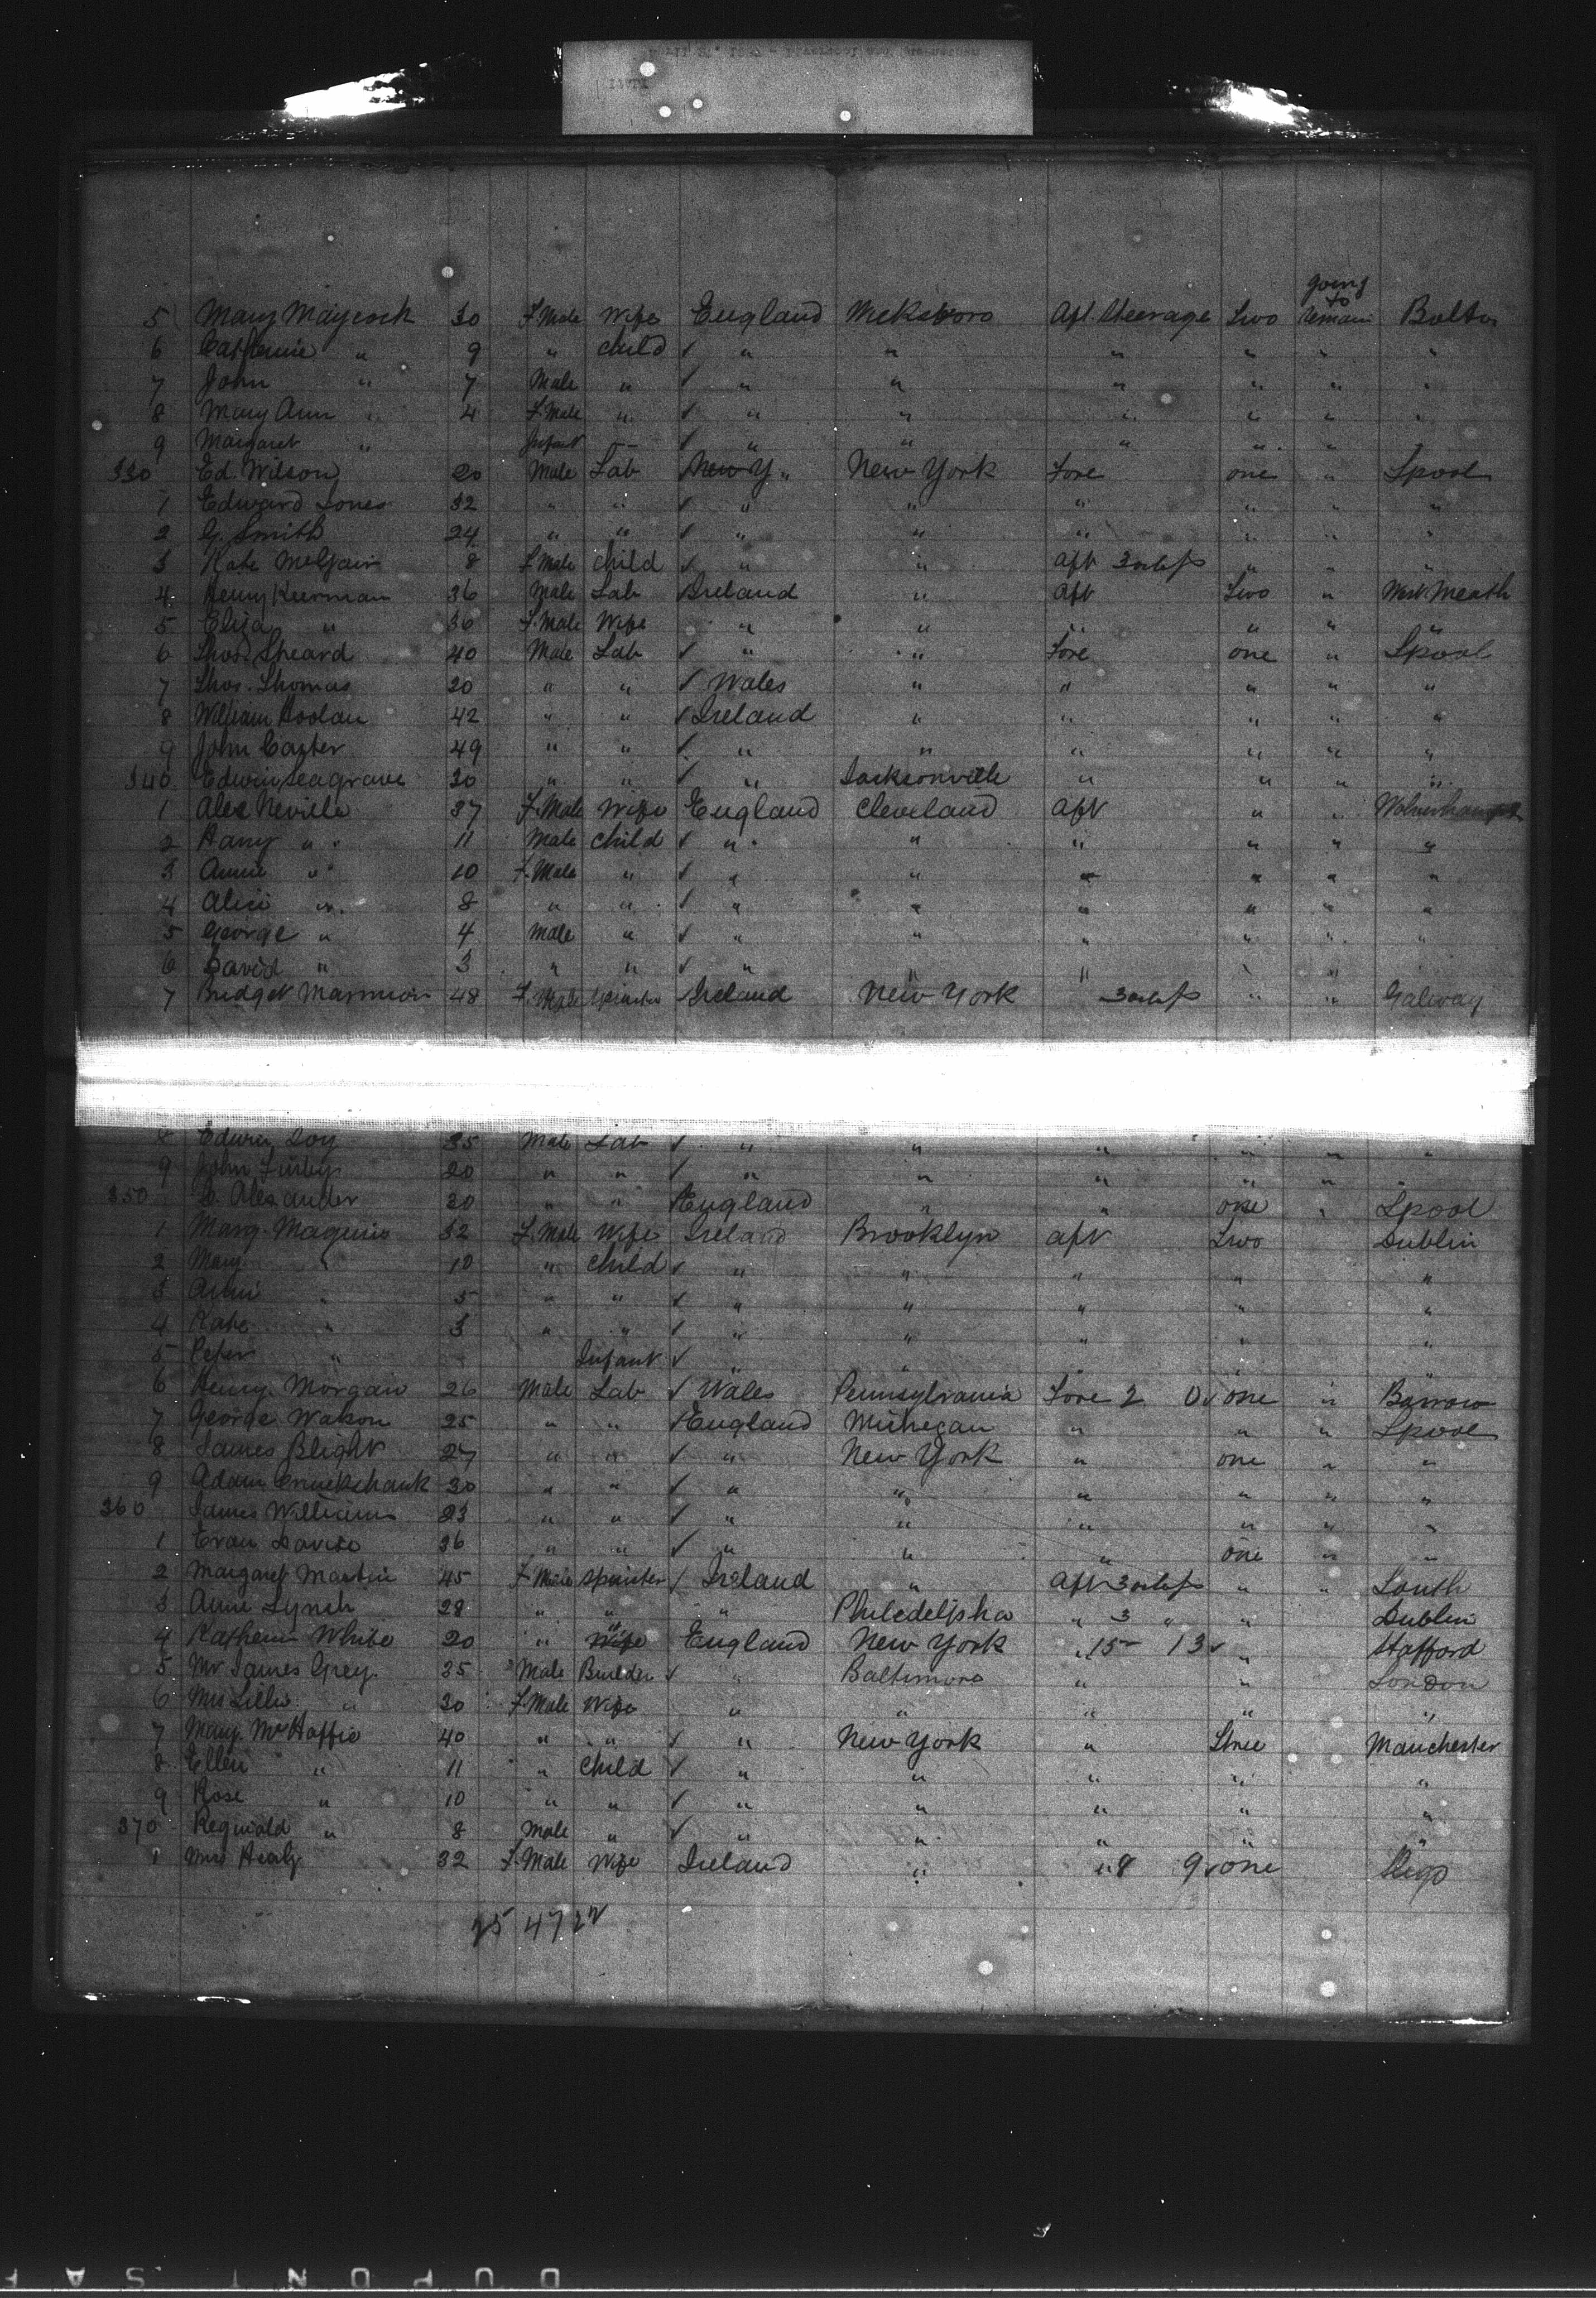 going
to
5 Mary Maycock 30 F.Male Wife England Wicksboro Aft. Steerage Two remain Bolton
6 Catherine " 9 " child ✓ " " " " " "
7 John " 7 Male " ✓ " " " " " "
8 Mary Ann " 4 F.Male " ✓ " " " " " "
9 Margaret " Infant ✓ " " " " "
330 Ed. Wilson 20 Male Lab New Y " New York Fore one " Lpool
1 Edward Jones 32 " " ✓ " " " " " "
2 G. Smith 24 " " ✓ " " " " " "
3 Kate 8 F.Male child ✓ " " aft 3 " " "
4 Henry Kiernan 36 Male Lab Ireland " aft Two " West Meath
5 Eliza " 36 F.Male Wife " " " " " "
6 Thos. Sheard 40 Male Lab ✓ " " Fore one " Lpool
7 Thos. Thomas 20 " " ✓ Wales " " " " "
8 William Hoolan 42 " " ✓ Ireland " " " " "
9 John Carter 49 " " ✓ " " " " " "
340 Edwin Seagrave 30 " " ✓ " Jacksonville " " " "
1 Alex Neville 37 F.Male Wife England Cleveland aft " "
2 Harry " 11 Male child ✓ " " " " " "
3 Annie " 10 F.Male " ✓ " " " " " "
4 Alice " 8 " " ✓ " " " " " "
5 George " 4 male " ✓ " " " " " "
6 David " 3 " " ✓ " " " " "
7 Bridget Marmion 48 F.Male Spinster ✓ Ireland New York " " Galway
8 Edwin 35 Male Lab ✓ " " " " " "
9 John 20 " " ✓ " " " " " "
350 Alexander 30 " " England " " one " Lpool
1 Marg. Maginis 32 F.Male Wife Ireland Brooklyn aft Two Dublin
2 Mary " 10 " child ✓ " " " " "
3 Annie " 5 " " ✓ " " " " "
4 Kate " 3 " " ✓ " " " " "
5 Peter " Infant ✓ " " " "
6 Henry Morgan 26 Male Lab ✓ Wales Pennsylvania Fore 2 one " Barrow
7 George Watson 25 " " England Michegan " " " Lpool
8 James Blight 27 " " ✓ " New York " one " "
9 Adam Cruckshank 30 " " ✓ " " " " " "
360 James Williams 23 " " ✓ " " " " " "
1 Evan Davies 36 " " ✓ " " " one " "
2 Margaret Martin 45 F.Male spinster ✓ Ireland " aft 3 " " Louth
3 Anne Lynch 28 " " " Philedelpha " 3 " " Dublin
4 Katherin White 20 " Wife England New York " 15 13 ✓ " Stafford
5 Mr James Grey 35 Male Builder ✓ " Baltimore " " London
6 Mrs Lillie " 30 F.Male Wife " " " " "
7 Mary McHaffie 40 " " ✓ " New York " Three Manchester
8 Ellen " 11 " child ✓ " " " " "
9 Rose " 10 " " ✓ " " " " "
370 Reginald " 8 Male " ✓ " " " " "
1 Mrs Healy 32 F.Male Wife Ireland " " 8 9 ✓ one Sligo
25 47 22
DUPONT SAF